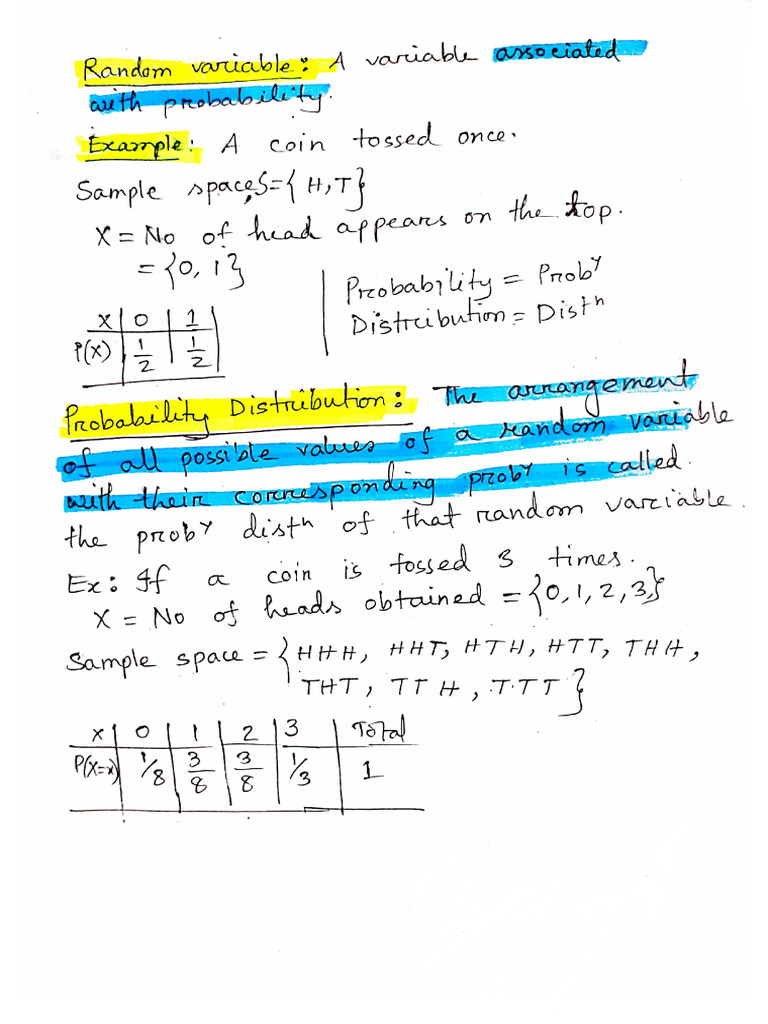 Random variable: A variable associated
with probability.
Example: A coin tossed once.
Sample space, S = { H, T }
X = No of head appears on the top.
= {0, 1}
X | 0 | 1
P(X) | 1/2 | 1/2
Probability = Prob^y
Distribution = Dist^n
Probability Distribution: The arrangement
of all possible values of a random variable
with their corresponding prob^y is called
the prob^y dist^n of that random variable.
Ex: If a coin is tossed 3 times.
X = No of heads obtained = {0, 1, 2, 3}
Sample space = { HHH, HHT, HTH, HTT, THH,
THT, TTH, TTT }
X | 0 | 1 | 2 | 3 | Total
P(X=x) | 1/8 | 3/8 | 3/8 | 1/3 | 1